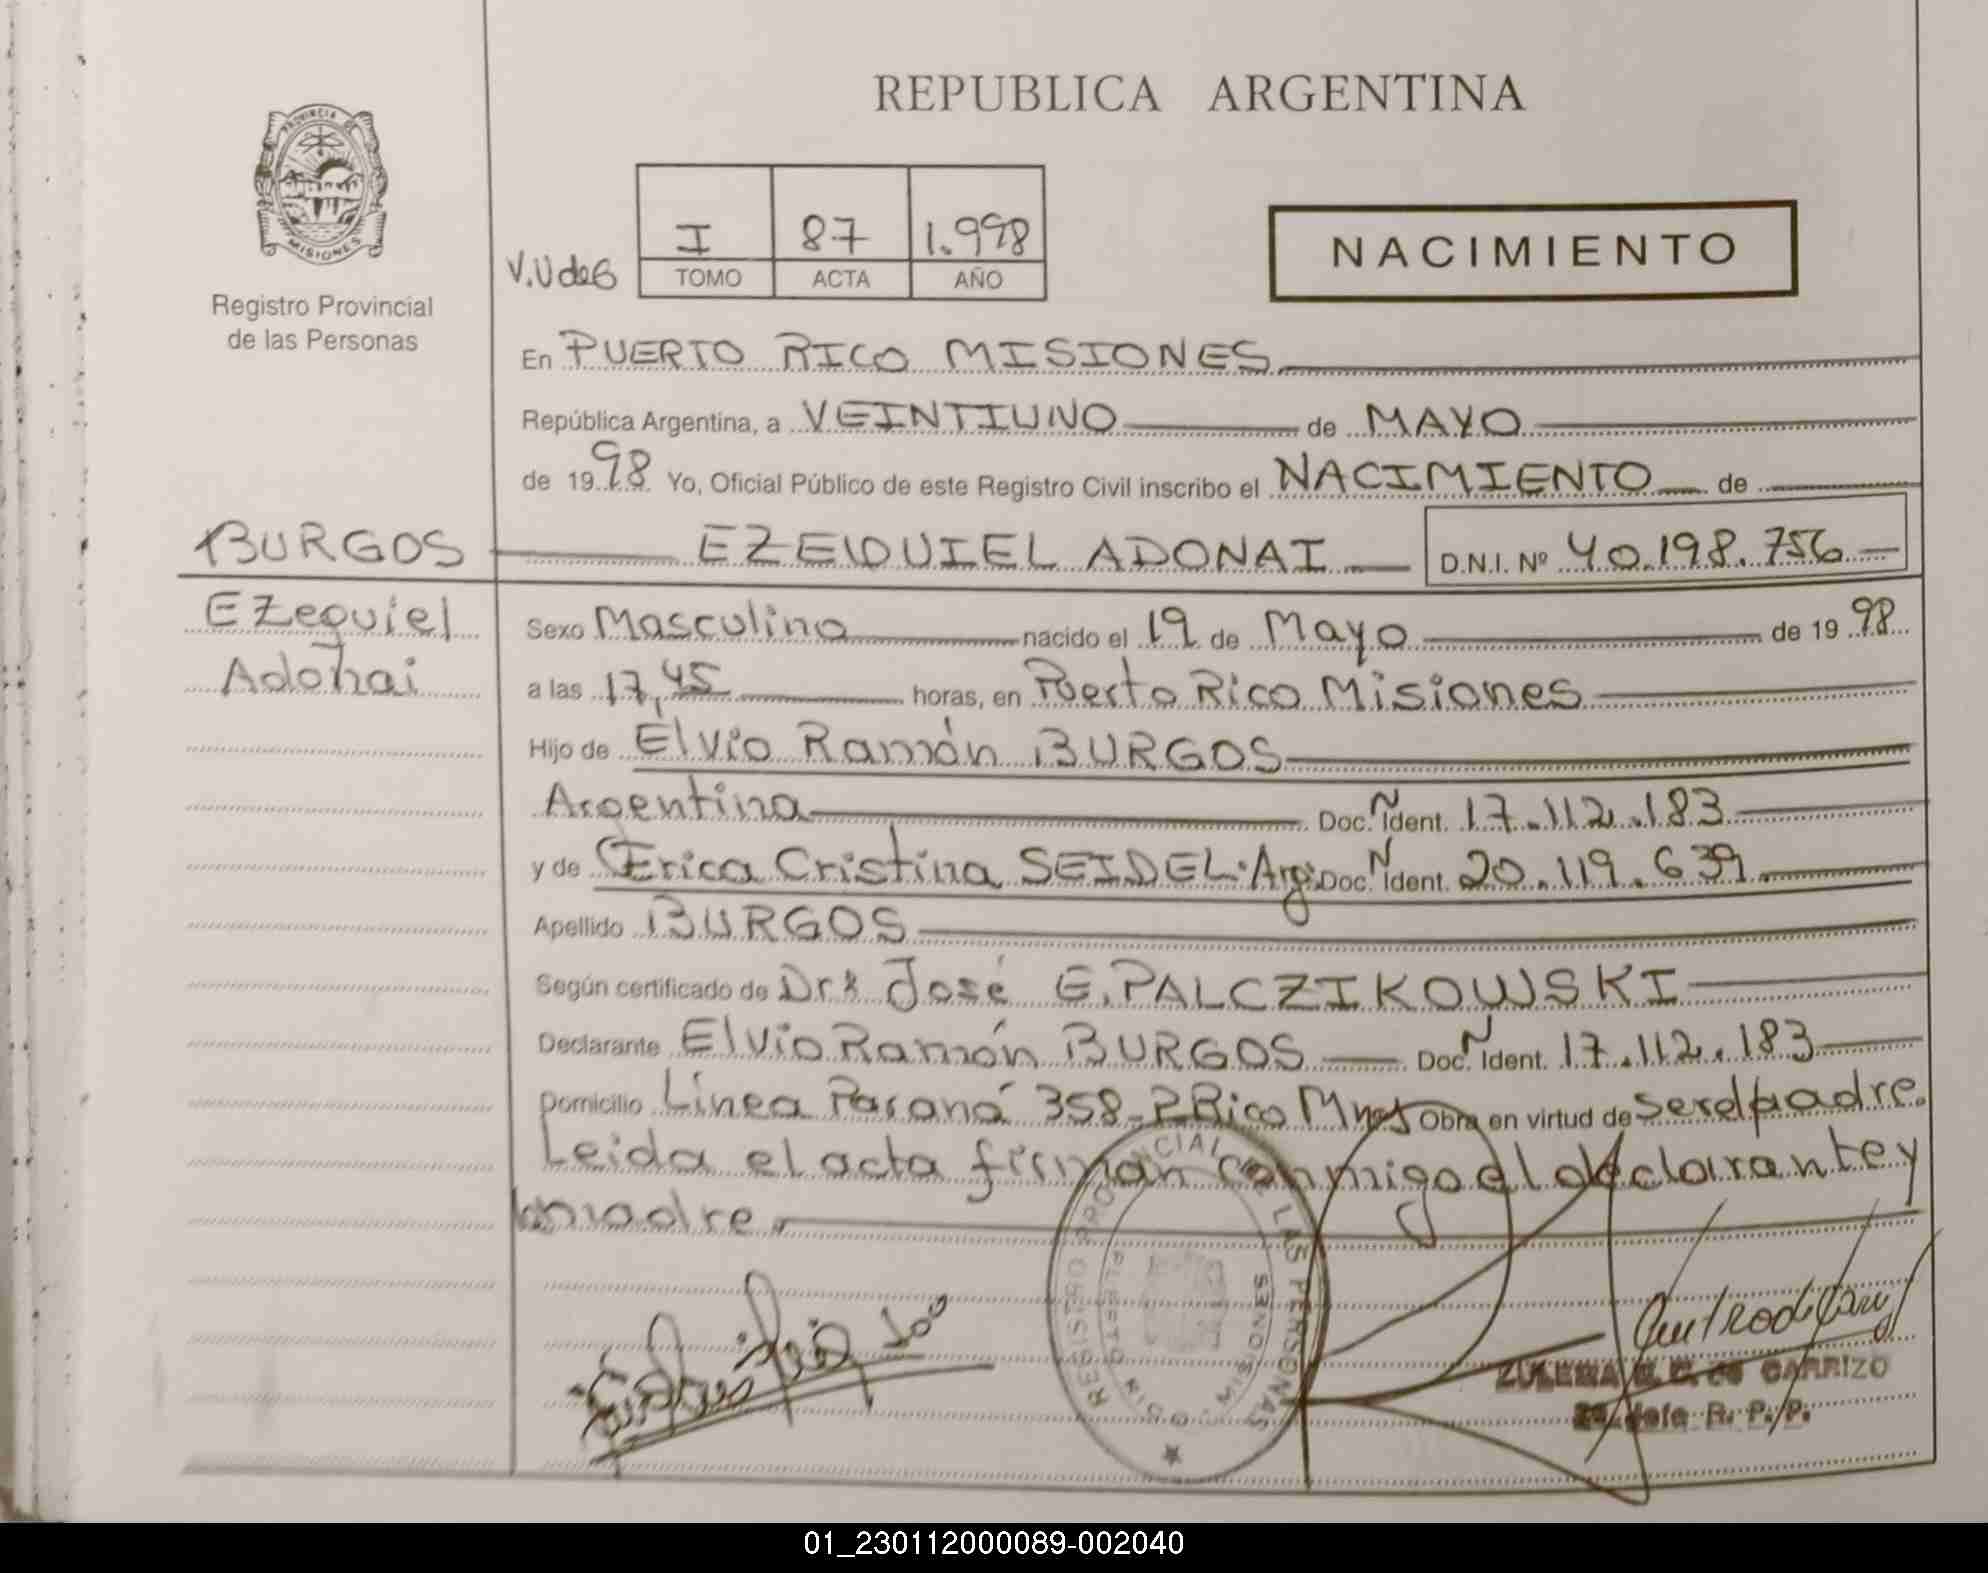 REPUBLICA ARGENTINA
PROVINCIA DE
MISIONES
Registro Provincial
de las Personas
V.UdeG
I 87 1.998
TOMO ACTA AÑO
NACIMIENTO
En PUERTO RICO MISIONES
República Argentina, a VEINTIUNO de MAYO
de 1998 Yo, Oficial Público de este Registro Civil inscribo el NACIMIENTO de
BURGOS EZEQUIEL ADONAI D.N.I. Nº 40.198.756
Ezequiel
Adonai
Sexo Masculino nacido el 19 de Mayo de 1998
a las 17,45 horas, en Puerto Rico Misiones
Hijo de Elvio Ramón BURGOS
Argentina Doc. Ident. 17.112.183
y de Erica Cristina SEIDEL. Arg. Doc. Ident. 20.119.639
Apellido BURGOS
Según certificado de Dr. José E. PALCZIKOWSKI
Declarante Elvio Ramón BURGOS Doc. Ident. 17.112.183
Domicilio Línea Paraná 358-P.Rico Mnes Obra en virtud de ser el padre.
Leida el acta firman conmigo el declarante y
la madre.
REGISTRO PROVINCIAL DE LAS PERSONAS
PUERTO RICO - MISIONES
ZULEMA de CARRIZO
Jefe R. P. P.
01_230112000089-002040